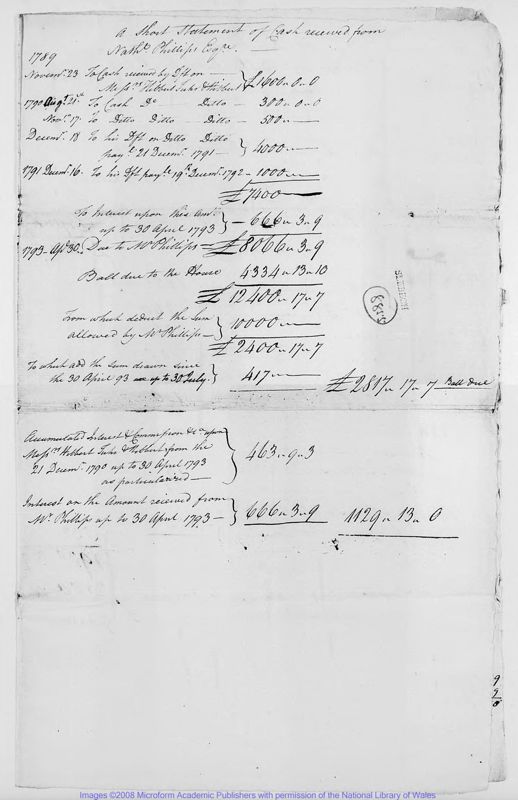 A Short Statement of Cash received from
Nathl Phillips Esqre.
1789
Novemr. 23 To Cash received by Dft on
Messrs Hibbert Fuhr & Hibbert } £1600 „ 0 „ 0
1790 Augt. 21st To Cash Do Ditto - 300 „ 0 „ 0
Novr. 17. To Ditto Ditto - Ditto - 500 „ —
Decemr. 18 To his Dft on Ditto Ditto
payl. 21 Decemr. 1791 — } 4000 „ —
1791 Decemr. 16. To his Dft payle 19th Decemr. 1792 - 1000 „ —
£7400 —
To Interest upon this Amt.
up to 30 April 1793 } — 666 „ 3 „ 9
1793 - Apl. 30. Due to Mr Phillips = £8066 „ 3 „ 9
Ball due to the House 4334 „ 13 „ 10
£12400 „ 17 „ 7
From which deduct the Sum
allowed by Mr Phillips — } 10000 „ —
£2400 „ 17 „ 7
To which add the Sum drawn since
the 30 April 93 up to 30th July. } 417 „ — £2817 „ 17 „ 7 Ball due
8819
Accumulated Interest & Commission &ca upon
Messrs Hibbert Fuhr & Hibbert from the
21 Decemr. 1790 up to 30 April 1793
as particularized — } 463 „ 9 „ 3
Interest on the Amount received from
Mr. Phillips up to 30 April 1793 — } 666 „ 3 „ 9 1129 „ 13 „ 0
Images ©2008 Microform Academic Publishers with permission of the National Library of Wales